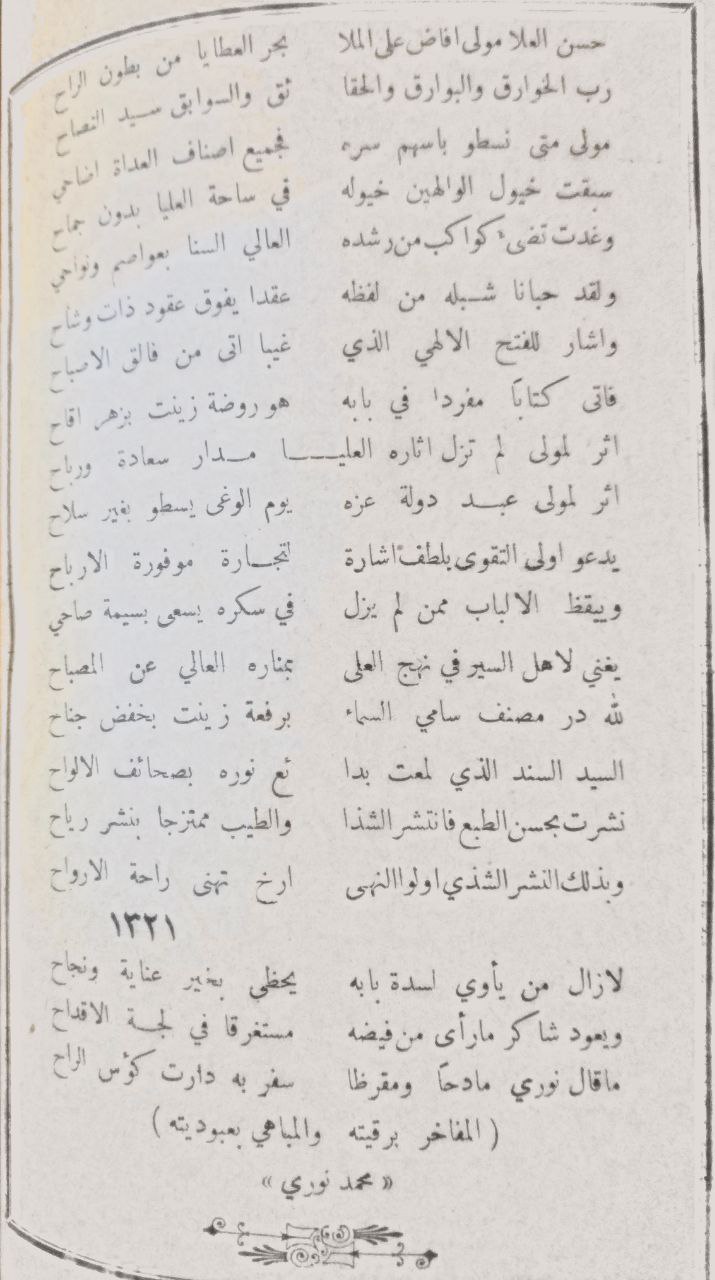 حسن العلا مولى افاض على الملا بحر العطايا من بطون الراح
رب الخوارق والبوارق والحقا ئق والسوابق سيد النصاح
مولى متى نسطو باسهم سره فجميع اصناف العداة اضاحي
سبقت خيول الوالهين خيوله في ساحة العليا بدون جماح
وغدت تضيء كواكب من رشده العالي السنا بعواصم ونواحي
ولقد حبانا شبله من لفظه عقدا يفوق عقود ذات وشاح
واشار للفتح الالهي الذي غيبا اتى من فالق الاصباح
فاتى كتاباً مفردا في بابه هو روضة زينت بزهر اقاح
اثر لمولى لم تزل اثاره العليا مدار سعادة ورباح
اثر لمولى عبد دولة عزه يوم الوغى يسطو بغير سلاح
يدعو اولى التقوى بلطف اشارة لتجارة موفورة الارباح
وييقظ الالباب ممن لم يزل في سكره يسعى بسيمة صاحي
يغني لاهل السير في نهج العلى بمناره العالي عن المصباح
لله در مصنف سامي السماء برفعة زينت بخفض جناح
السيد السند الذي لمعت بدا ئع نوره بصحائف الالواح
نشرت بحسن الطبع فانتشر الشذا والطيب ممتزجا بنشر رياح
وبذلك النشر الشذي اولوا النهى ارخ تهنى راحة الارواح
١٣٢١
لازال من يأوي لسدة بابه يحظى بخير عناية ونجاح
ويعود شاكر مارأى من فيضه مستغرقا في لجة الاقداح
ماقال نوري مادحاً ومقرظا سفر به دارت كؤس الراح
( المفاخر برقيته والمباهي بعبوديته )
« محمد نوري »